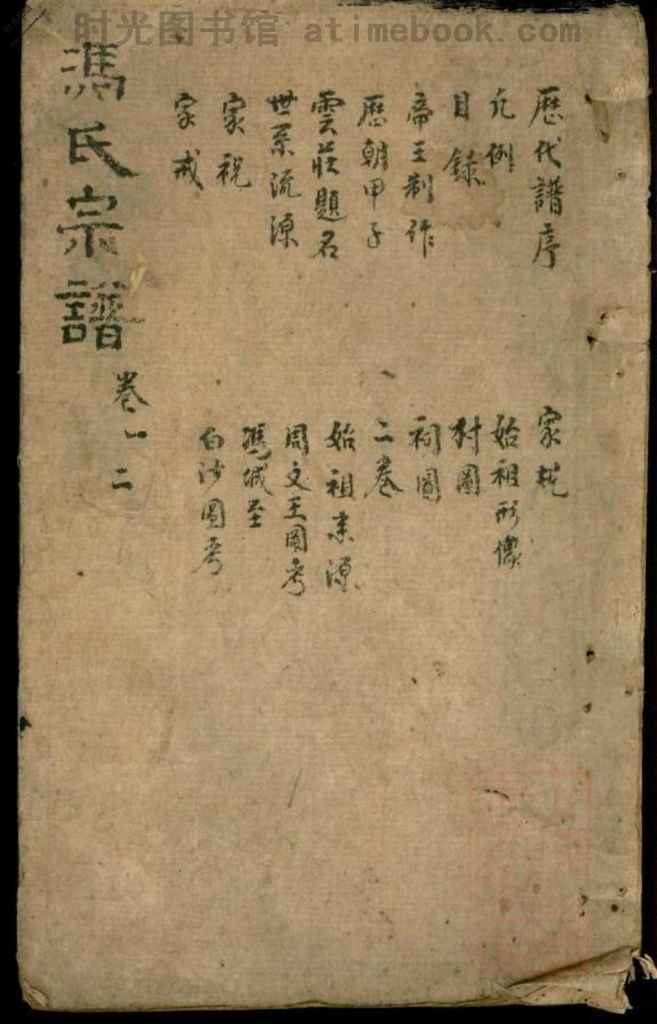 时光图书馆 atimebook.com
歷代譜序
凡例
目錄
帝王制作
歷朝甲子
雲莊題名
世系流源
家祝
家戒
家規
始祖形像
村圖
祠圖
二卷
始祖來源
周文王圖考
馮城至
白沙圖考
馮氏宗譜
卷一二